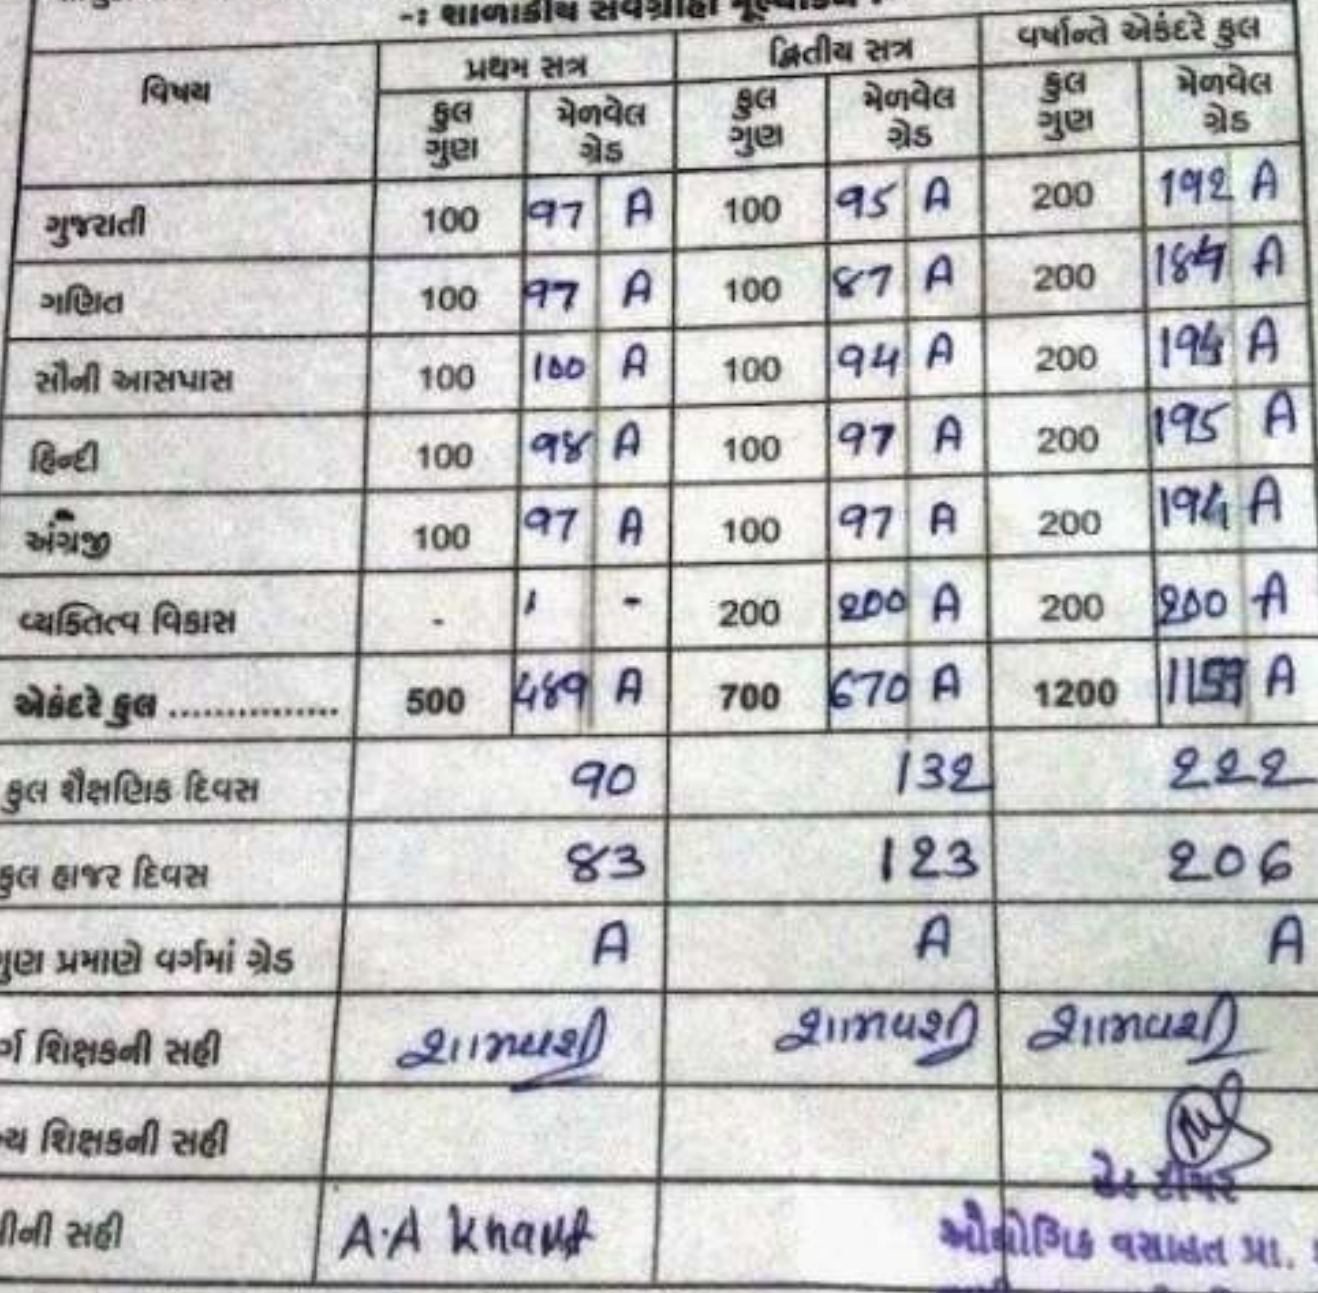 -: શાળાકીય સર્વગ્રાહી મૂલ્યાંકન :
વિષય પ્રથમ સત્ર દ્વિતીય સત્ર વર્ષાન્તે એકંદરે કુલ
કુલ ગુણ મેળવેલ ગ્રેડ કુલ ગુણ મેળવેલ ગ્રેડ કુલ ગુણ મેળવેલ ગ્રેડ
ગુજરાતી 100 97 A 100 95 A 200 192 A
ગણિત 100 97 A 100 87 A 200 A
સૌની આસપાસ 100 100 A 100 94 A 200 194 A
હિન્દી 100 98 A 100 97 A 200 195 A
અંગ્રેજી 100 97 A 100 97 A 200 194 A
વ્યક્તિત્વ વિકાસ - - 200 200 A 200 200 A
એકંદરે કુલ ............... 500 489 A 700 670 A 1200 1159 A
કુલ શૈક્ષણિક દિવસ 90 132 222
કુલ હાજર દિવસ 83 123 206
ગુણ પ્રમાણે વર્ગમાં ગ્રેડ A A A
શિક્ષકની સહી
શિક્ષકની સહી
સહી A.A
ઔદ્યોગિક વસાહત પ્રા.